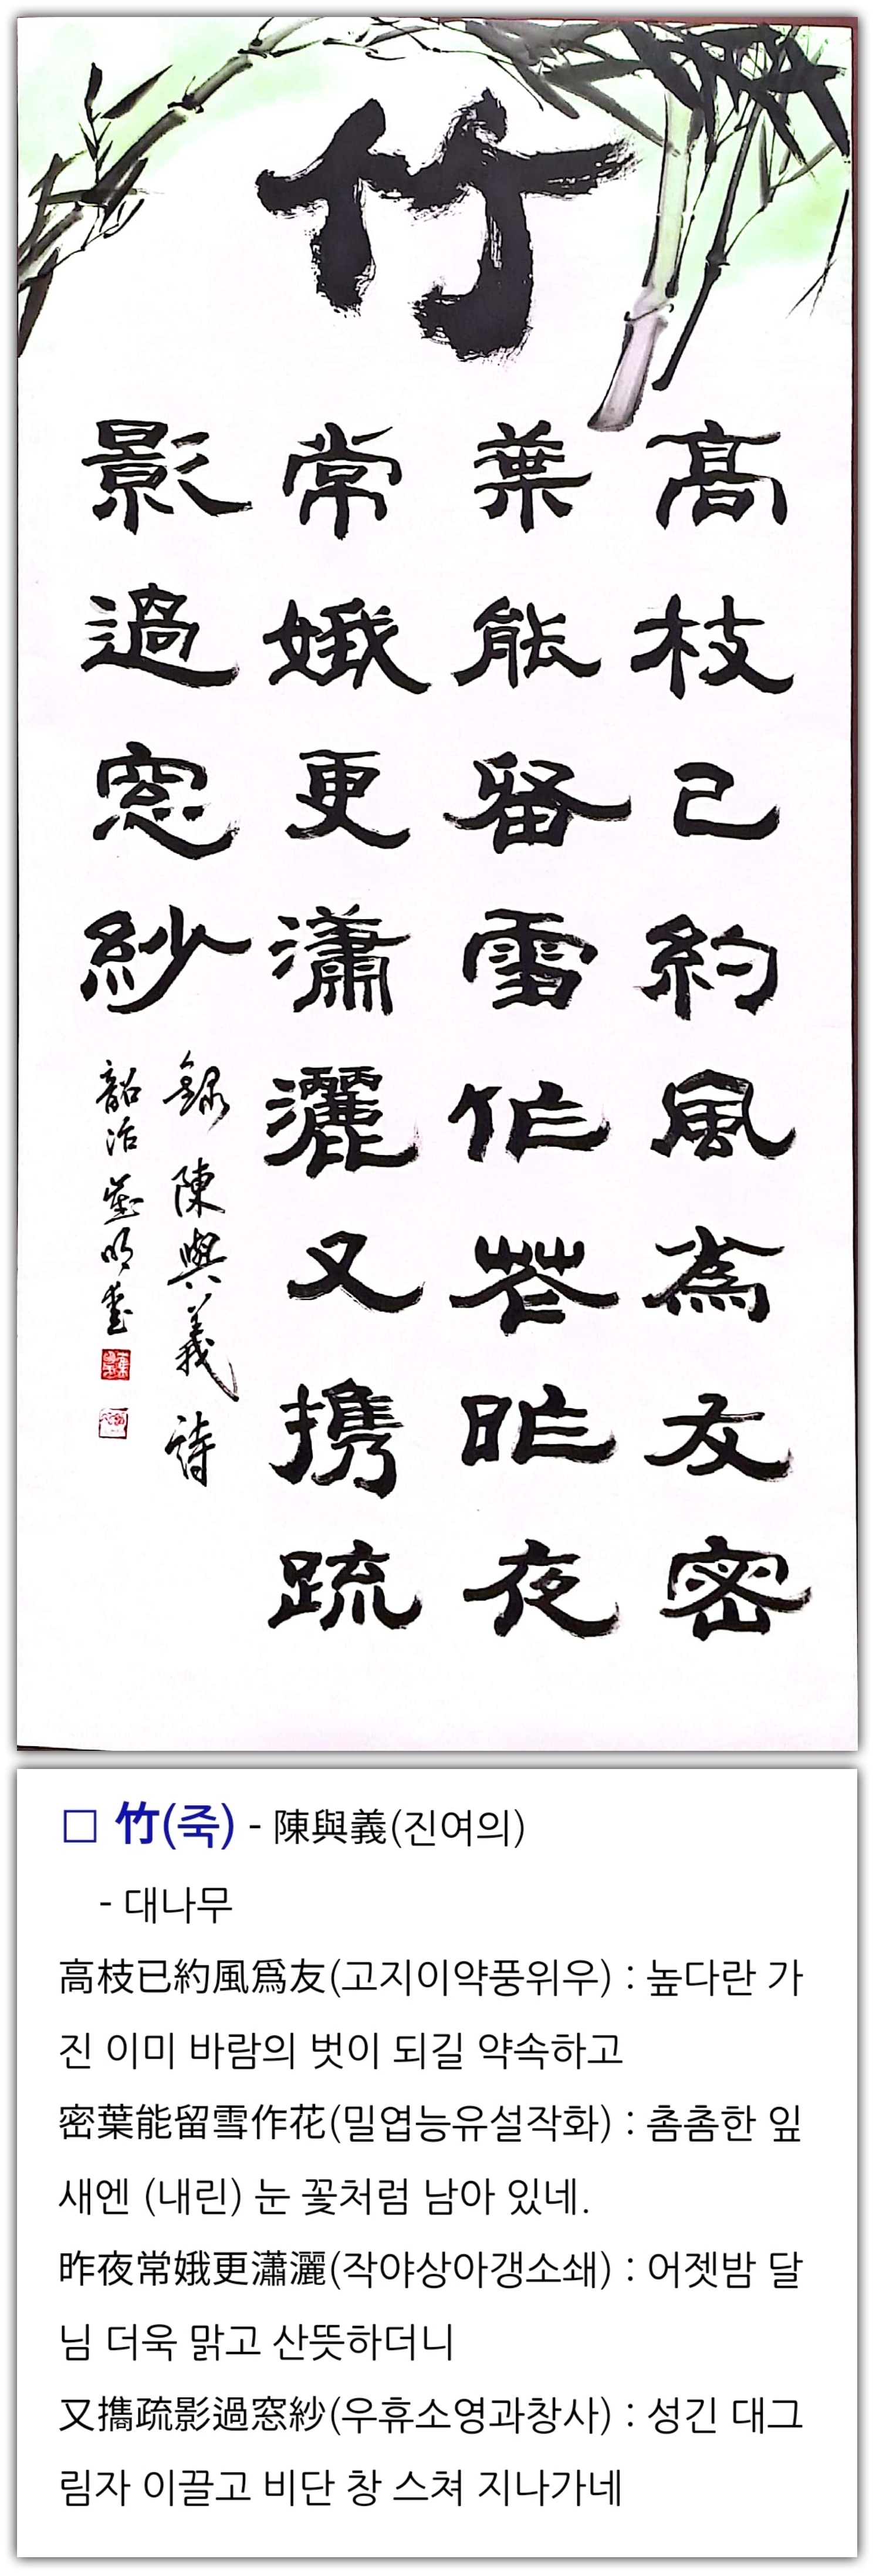 竹
高枝已約風為友密
葉能留雪作花昨夜
常娥更瀟灑又携疏
影過窓紗
錄陳與義詩
□ 竹(죽) - 陳與義(진여의)
- 대나무
高枝已約風爲友(고지이약풍위우) : 높다란 가
진 이미 바람의 벗이 되길 약속하고
密葉能留雪作花(밀엽능유설작화) : 촘촘한 잎
새엔 (내린) 눈 꽃처럼 남아 있네.
昨夜常娥更瀟灑(작야상아갱소쇄) : 어젯밤 달
님 더욱 맑고 산뜻하더니
又攜疏影過窓紗(우휴소영과창사) : 성긴 대그
림자 이끌고 비단 창 스쳐 지나가네